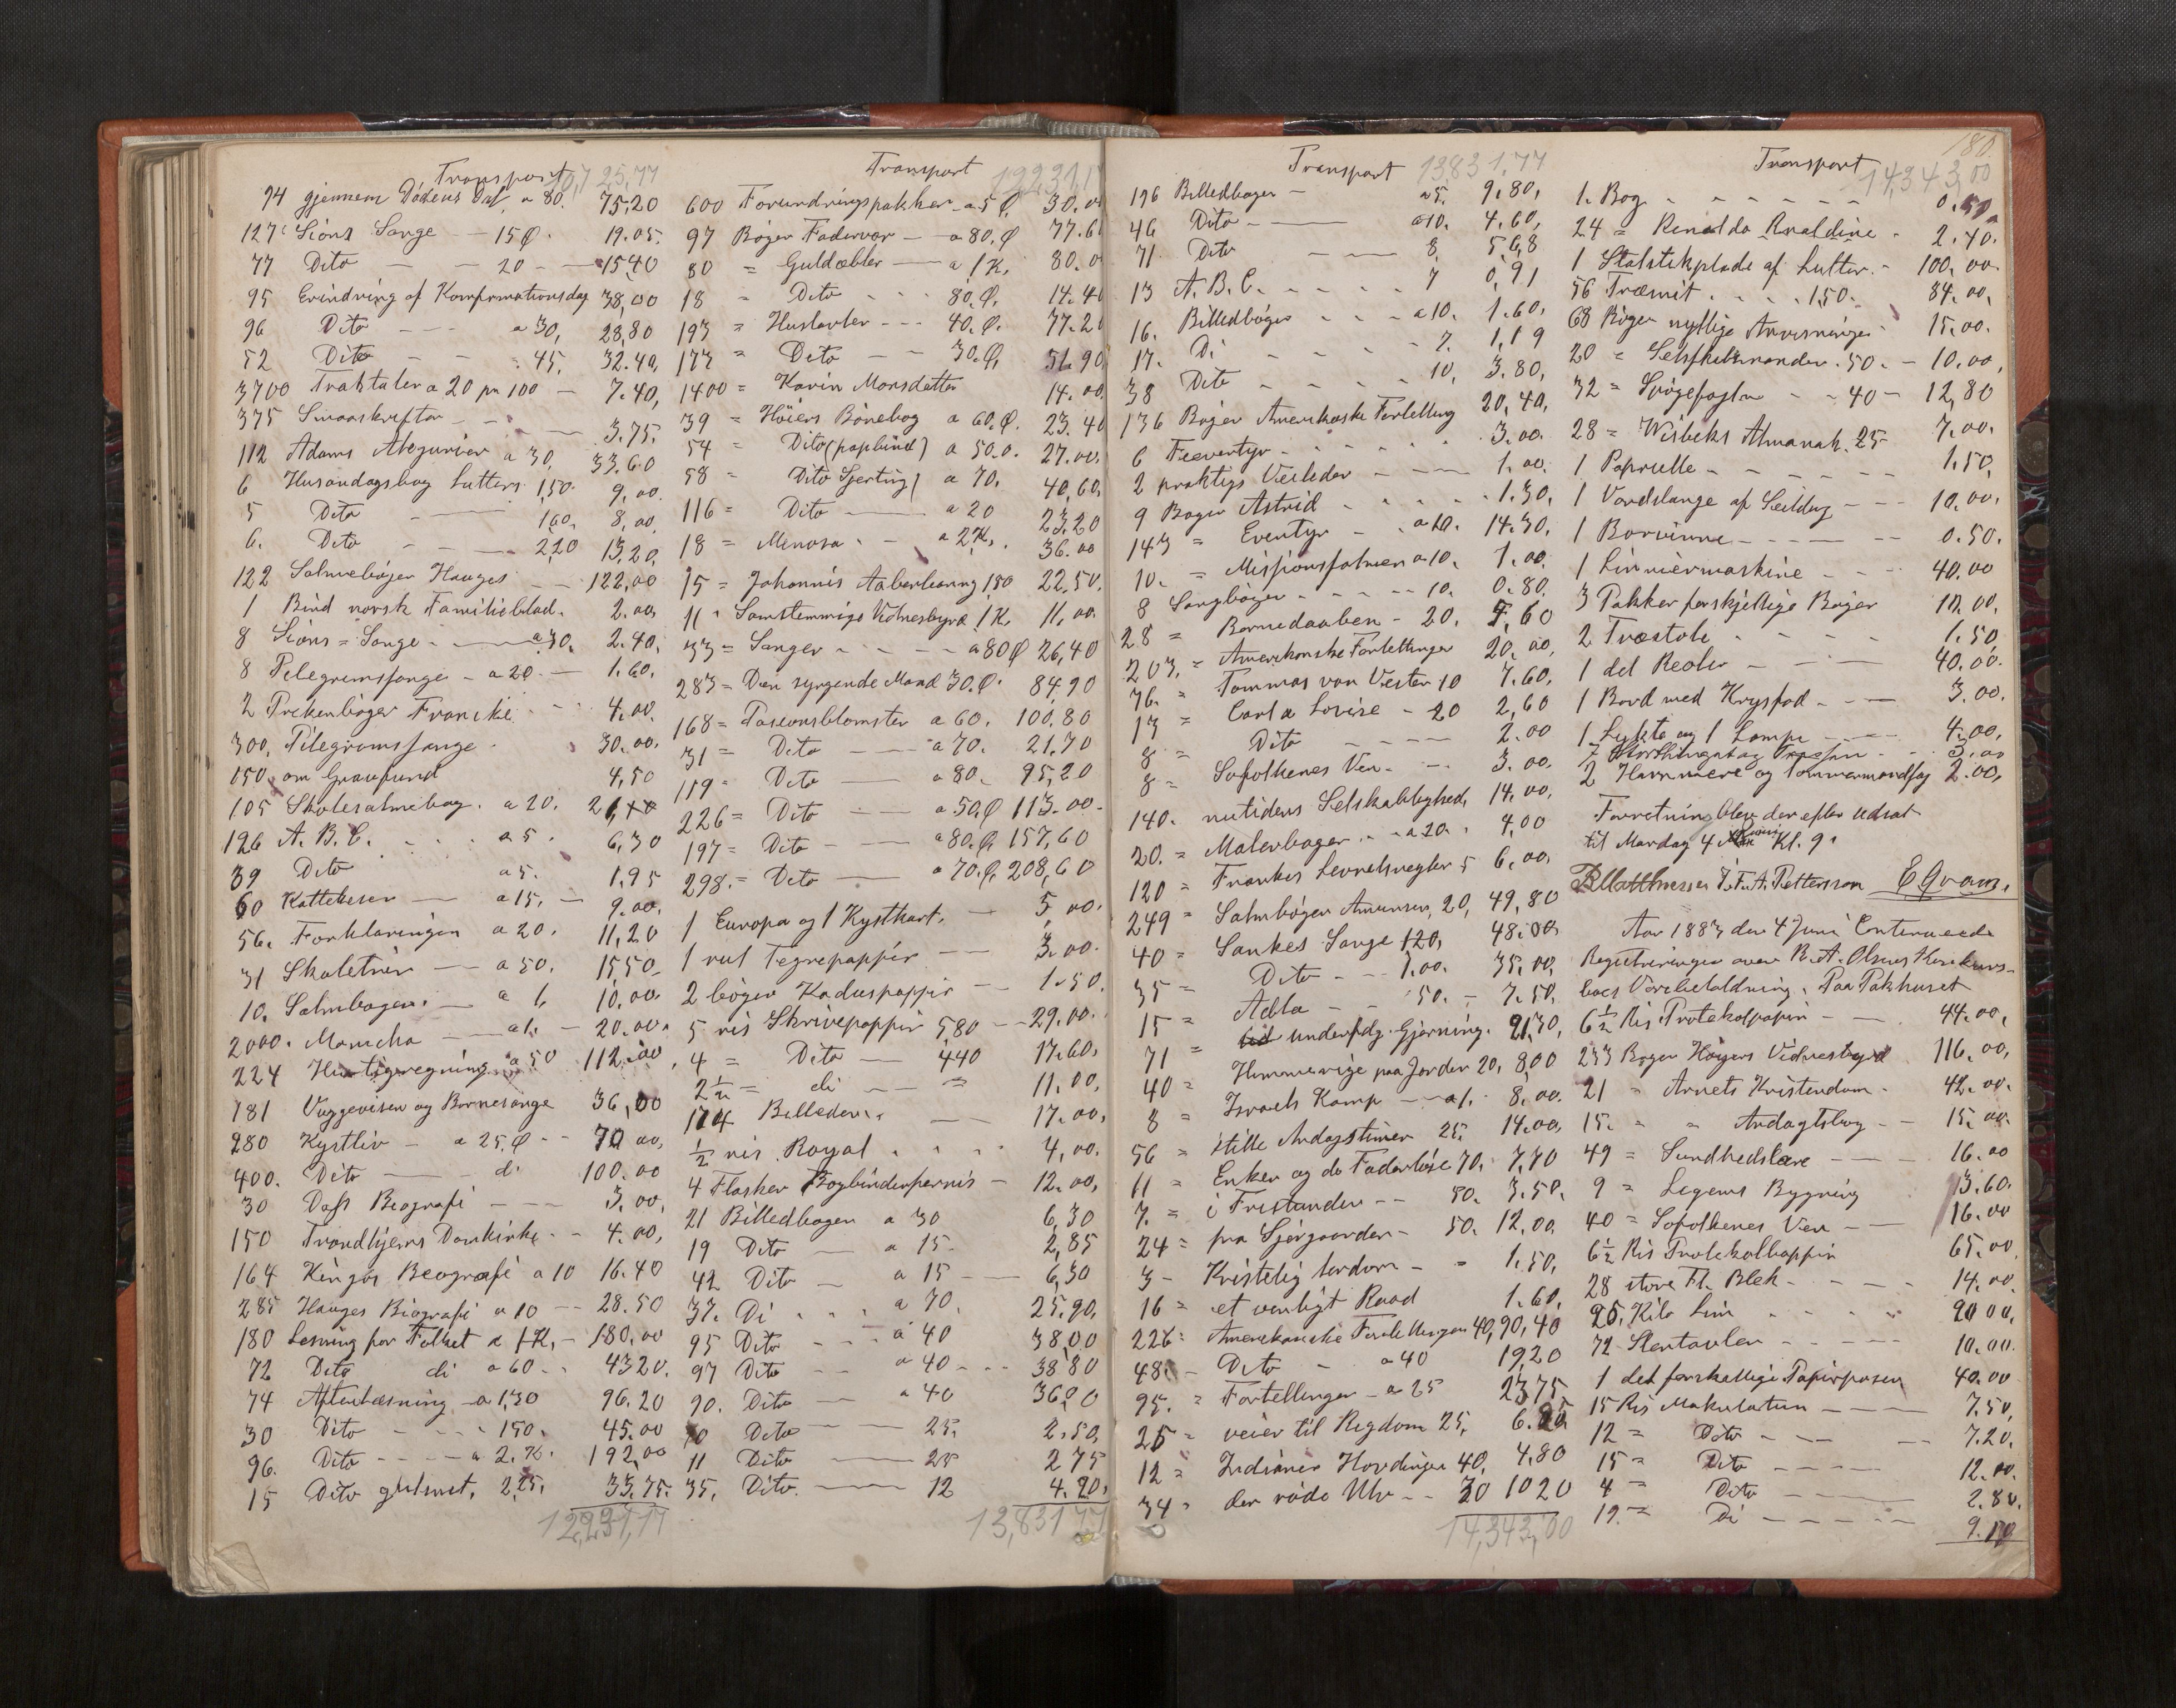 Transport 10,725,77
94 gjennem Dödens Dal a 80. 75,20
127 Sions Sange - 15 Ø. 19.05.
77 Dito - - 20 - 15,40
95 Erindring af Konfirmationsdag 38,00
96 Dito - - a 30, 28,80
52 Dito - - 45, 32.40,
3700 Traktater a 20 pr 100 - 7.40,
375 Smaaskrifter - - 3.75.
112 Adams a 30, 33.60
6 Husandagsbog Lutters 1,50. 9,00.
5 Dito - 160, 8,00,
6. Dito - - 2,20 13,20,
122 Salmebøger Hauges - 122,00
1 Bind norsk Familieblad. 2.00,
8 Sions = Sange - - a 30, 2.40,
8 Pelegrimssange - a 20 - 1.60.
2 Prekenbøger Franske - - 4,00.
300, Pilegrimssange - 30.00.
150 om Grav 4,50
105 Skolesalmebog. a 20. 21,00
126 A. B. C. - - a 5. 6,30
39 Dito a 5. 1,95
60 Kattekesen - a 15, - 9.00,
56. Forklaringen a 20. 11,20
31 Skoletnir - a 50. 15,50
10. Salmbogen. - a 1, 10,00
2000. - a 1. - 20.00.
224 Hurtigregning a 50 112.00,
181 Vuggeviser og Bornesange 36,00
280 Kystliv - a 25 Ø - - 70 00,
400. Dito - di 100.00
30 Dass Beografi - - - 3,00,
150 Trondhjems Domkirke - - 4.00,
164 Kingos Beografi a 10 16.40
285 Hauges Biografi a 10 - - 28.50
180 Lesning for Folket a 1 K. - 180,00
72 Dito di a 60 - - 43 20.
74 Aftenlæsning a 1,30 96.20
30 Dito - - - 150. 45.00
96. Dito - - - a 2. K. 192,00
15 Dito gulsnit, 2,25, 33,75.
12,231,17
Transport 12231,17
600 Forundringspakker - a 5 Ø. 30.00
97 Bøger Fadervor - a 80. Ø 77.60
80 = Guldæbler - a 1 K. 80.0
18 = Dito - - - 80. Ø. 14.40
193 = Hustavler - - - 40. Ø. 77.20
173 = Dito - - 30. Ø, 51.90,
1400 = Karin Monsdatter 14.00
39 = Höiers Bönebog a 60. Ø. 23.40
54 = Dito (papbind) a 50.0. 27.00,
58 = Dito Sjerting) a 70, 40,60,
116 = Dito - a 20 23,20
18 = Menosa - - a 2 K. 36.00
15 = Johannis Aabenbaring 1,50 22,50.
11 = Samstemmige Vidnesbyrd 1 K. 11,00.
33 = Sanger - - - - a 80 Ø 26,40
283 = Den syrgende Mand 30. Ø. 84.90
168 = Pasionsblomster a 60. 100,80
31 = Dito - a 70. 21.70
119 = Dito - a 80. 95,20
226 = Dito - a 50, Ø 113.00 -
197 = Dito - a 80. Ø, 157,60
298. = Dito - a 70. Ø, 208,60
1 Europa og 1 Kysthart. - 5,00.
1 rul Tegnepappir - 3.00.
2 böger Karduspappir - 1.50.
5 ris Skrivepappir 5,80 - 29.00.
4 = Dito - 4,40 17.60,
2½ = di - = 11.00,
174 Billeder. - 17.00,
½ ris Royal - - - 4,00.
4 Flasker Bogbinderfernis - 12.00,
21 Billedbogen a 30 6,30
19 Dito - a 15 - 2,85
42 Dito - a 15 - 6,30
37. Di - - - a 70. 25,90,
95 Dito - - a 40 38,00
97 Dito - a 40 - - 38,80
90. Dito - a 40 36,00
10 Dito - 25. 2,50,
11 Dito - 25 2 75
35, Dito. - 12 4.20,
13,831 77
Transport 13831,77
196 Billedbogen - a 5. 9.80,
46 Dito - - a 10. 4.60,
71 Dito - - 8, 5,68
13 A. B. C. - - - - 7 0,91
16. Billedböger - - - a 10. 1.60,
17. Di - - - - 7. 1,19
38 Dito - - - - 10, 3.80,
136 Bøger Amerikaske Fortelling 20,40,
6 Feeventyr - - - - 3.00.
2 praktigs Veileder - - 1.00.
9 Boger Astrid - - - - 1.30,
143 = Eventyr - - a 10. 14.30,
10. = Missionssalmen a 10. 1.00.
8 Sangböger - - - - 10. 0.80.
28 = Barnedaaben - 20. 5,60
203. = Amerikanske Fortellinger 20,00,
76. = Tommas von Vesten 10 7.60,
13 = Carl a Lovise - 20 2,60
8 = Dito - - - - 2.00
8 = Sofolkenes Ven - - - 3.00.
140. nutidens Selskabelighed, 14,00,
20. = Malerboger - - a 20. 4,00
120 = Frankes Levnetsregler 5 6,00.
249 = Salmbøger Amunsen, 20, 49,80
40 = Sankes Sange 1,20, 48.00.
35 = Dito - - 1.00. 35,00,
15 = Adla - - 50. - 7.50,
71 = underfulg. Gjerning. 21,30,
40 = Himmerige paa Jorden 20, 8,00
8 = Israels Kamp - a 1. - 8,00.
56 = stille Andagstimer 25. 14.00,
11 = Enker og de Faderløse 70, 7,70
7. = i Frestunder - - 50. 3.50.
24 = fra Sjørgaarden - 50. 12,00,
3 - Kristelig lærdom - - 1.50,
16 = et venligt Raad 1.60,
226 = Amerikanske Fortellinger 40, 90,40
48. - Dito - a 40 19,20
95. = Fortellinger - a 25 23,75
25 = veier til Rigdom 25, 6.25
12 = Indianer Hovdingen 40, 4,80
34 = den røde Ulv - - 30 10 20
14,343,00
180.
Transport 14,343,00
1. Bog - - - - - 0.50,
24 = Renaldo Renaldine - 2.40.
1 Stalstikplade af Lutter. - 100,00.
56 Træsnit . . . . 1,50. 84.00,
68 Bøger nyttige Anvisninger - 15.00.
20 = . 50. - 10.00,
32 = Spögefuglen - - 40 - 12,80
28 = Wisbeks Almanak. 25 - 7.00.
1 Paprulle - - - - - 1.50,
1 Vandslange af Seildug - - 10.00.
1 Borvinne - - - - - - 0.50.
1 Linniermaskine - - - 40.00
3 Pakker forskjellige Bøger 10.00.
2 Træstole - - - - - 1.50,
1 del Reoler - - - - 40.00.
1 Bord med Krysfod - - - 3.00.
1 Lykta og 1 Lampe - - - 4.00,
3,00
2 Hammere og Tommermandssag 2.00,
Forretningen blev derefter udsat
til Mandag 4 Juni Kl. 9.
J. F. A. Pettersson E Qvam.
Aar 1883 den 4 Juni Contenuerede
Registreringen over B. A. Olsens Konkurs-
boes Varebeholdning. Paa Pakhuset
6½ Ris Protokolpapir - - 44.00,
233 Boger Höyers Vidnesbyrd 116,00,
21 = Arnets Kristendom - 42.00.
15. = = Andagtsbog - - 15.00.
49 = Sundhedslære - - - 16.00
9 = Legems Bygning 13.60.
40 = Sofolkenes Ven - - 16.00
6½ Ris Protokolpappir 65.00,
28 store Fl. Blek - - - - 14.00
25, Kilo Lim - - - - 20 00,
72 Stentavler - - - - 10.00.
1 del forskallige Papirposer 40.00
15 Ris Makulatur - - - - 7.50,
12 = Dito - - - - 7.20,
15 = Dito - - - - 12.00.
4 = Dito - - - - 2.80.
19 = Di - - - - - 9.50